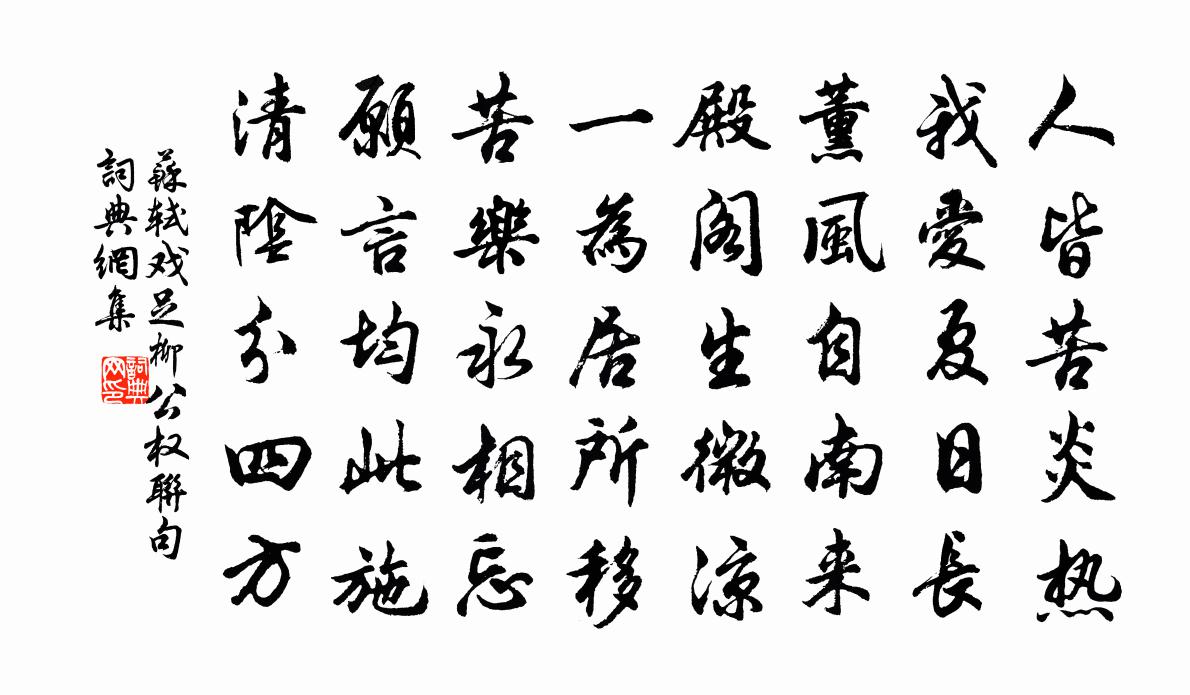 人皆苦炎热
我愛夏日長
薰風自南来
殿阁生微涼
一為居所移
苦樂永相忘
願言均此施
清陰分四方
蘇軾戏足柳公权聯句
詞典網集
詞典网印